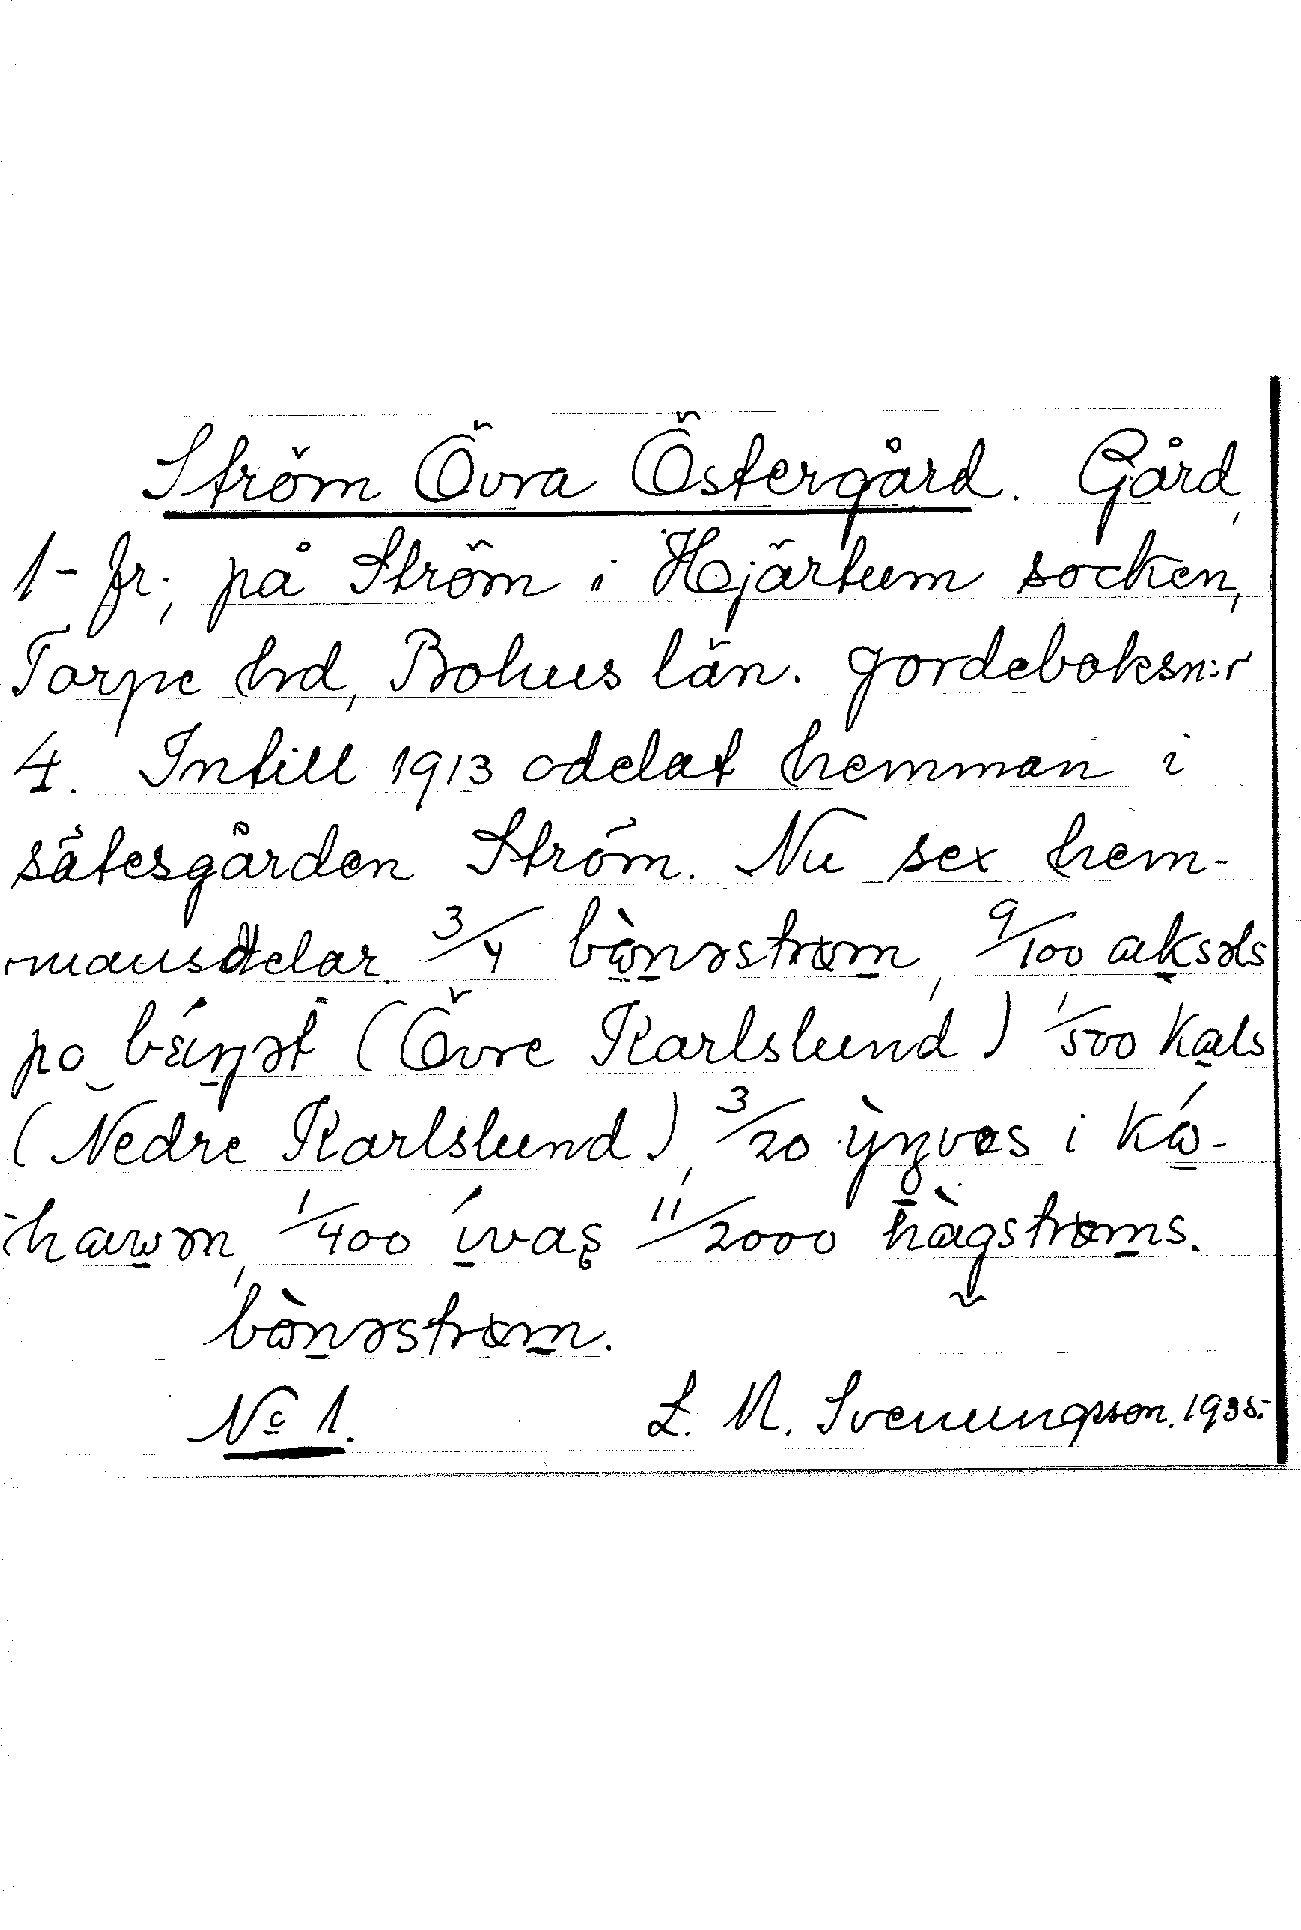 Ström Övra Östergård. Gård,
1- fr; på Ström i Hjärtum socken,
Torpe hrd, Bohus län. Jordeboksn:r
4. Intill 1913 odelat hemman i
sätesgården Ström. Nu sex hem-
mansdelar. 3/4 bònəstrøm, 9/100 aksəls
po béŋət (Övre Karlslund) 1/500 Kals
(Nedre Karlslund), 3/20 ỳŋvəs i Kó-
hawən, 1/400 ívaş 11/2000 hàgstrøms.
bònəstrøm.
No 1. L. M. Svenungsson. 1935.